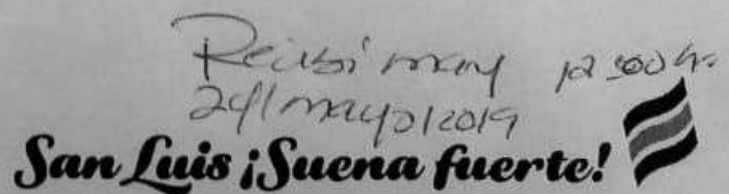 Recibí many 12:00 hs
24/mayo/2019
San Luis ¡Suena fuerte!